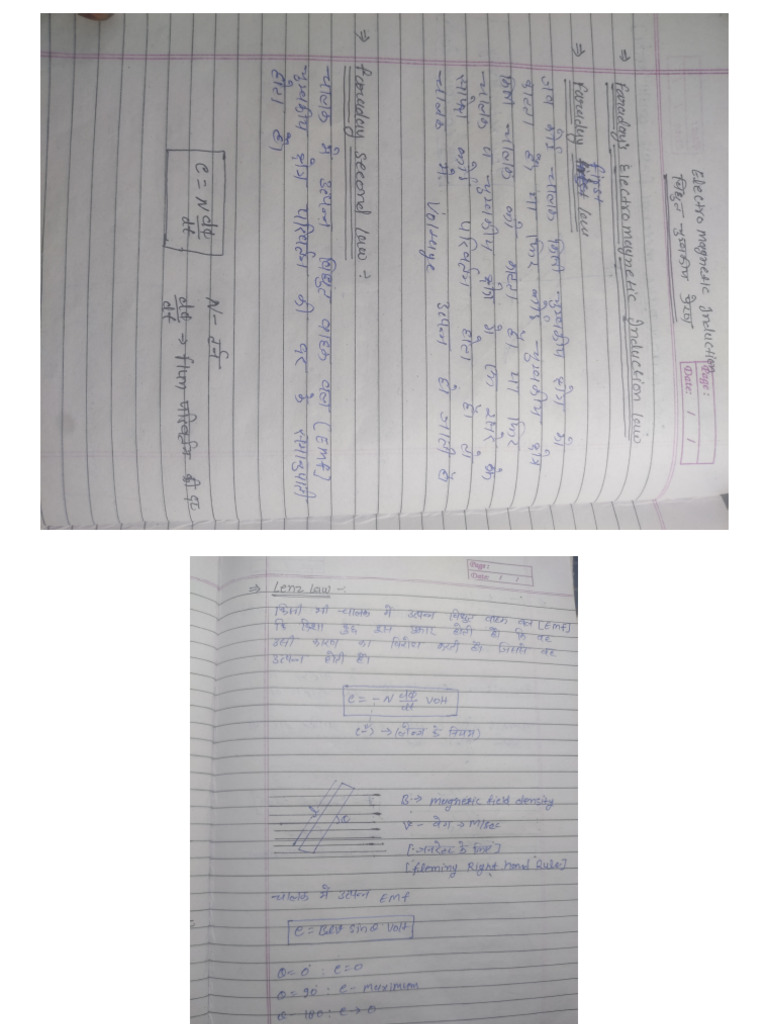 Page:
Date: / /
Electro magnetic Induction
विद्युत चुम्बकीय प्रेरण
⇒ Faraday's Electromagnetic Induction law
⇒ Faraday first law
जब कोई चालक किसी चुम्बकीय क्षेत्र को
काटता है, या फिर कोई चुम्बकीय क्षेत्र
किसी चालक को काटता है। या फिर
चालक व चुम्बकीय क्षेत्र में एक दूसरे के
सापेक्ष कोई परिवर्तन होता है। तो
चालक में Voltage उत्पन्न हो जाती है
⇒ Faraday second law :-
चालक में उत्पन्न विद्युत वाहक बल (EMF)
चुम्बकीय क्षेत्र परिवर्तन की दर के समानुपाती
होता है।
e = N dΦ/dt
N - टर्न
dΦ/dt → फ्लक्स परिवर्तन की दर
Page:
Date: / /
⇒ Lenz law :-
किसी भी चालक में उत्पन्न विद्युत वाहक बल [EMF]
कि दिशा कुछ इस प्रकार होती है। कि वह
उसी कारण का विरोध करती है। जिससे वह
उत्पन्न होती है।
e = - N dΦ/dt Volt
(-) → (लेन्ज के नियम)
B → magnetic field density
V - वेग → M/sec
[जनरेटर के लिए]
[fleming Right hand Rule]
चालक में उत्पन्न EMF
e = BLV sinθ Volt
θ = 0° : e = 0
θ = 90° : e - maximum
θ = 180° : e → 0